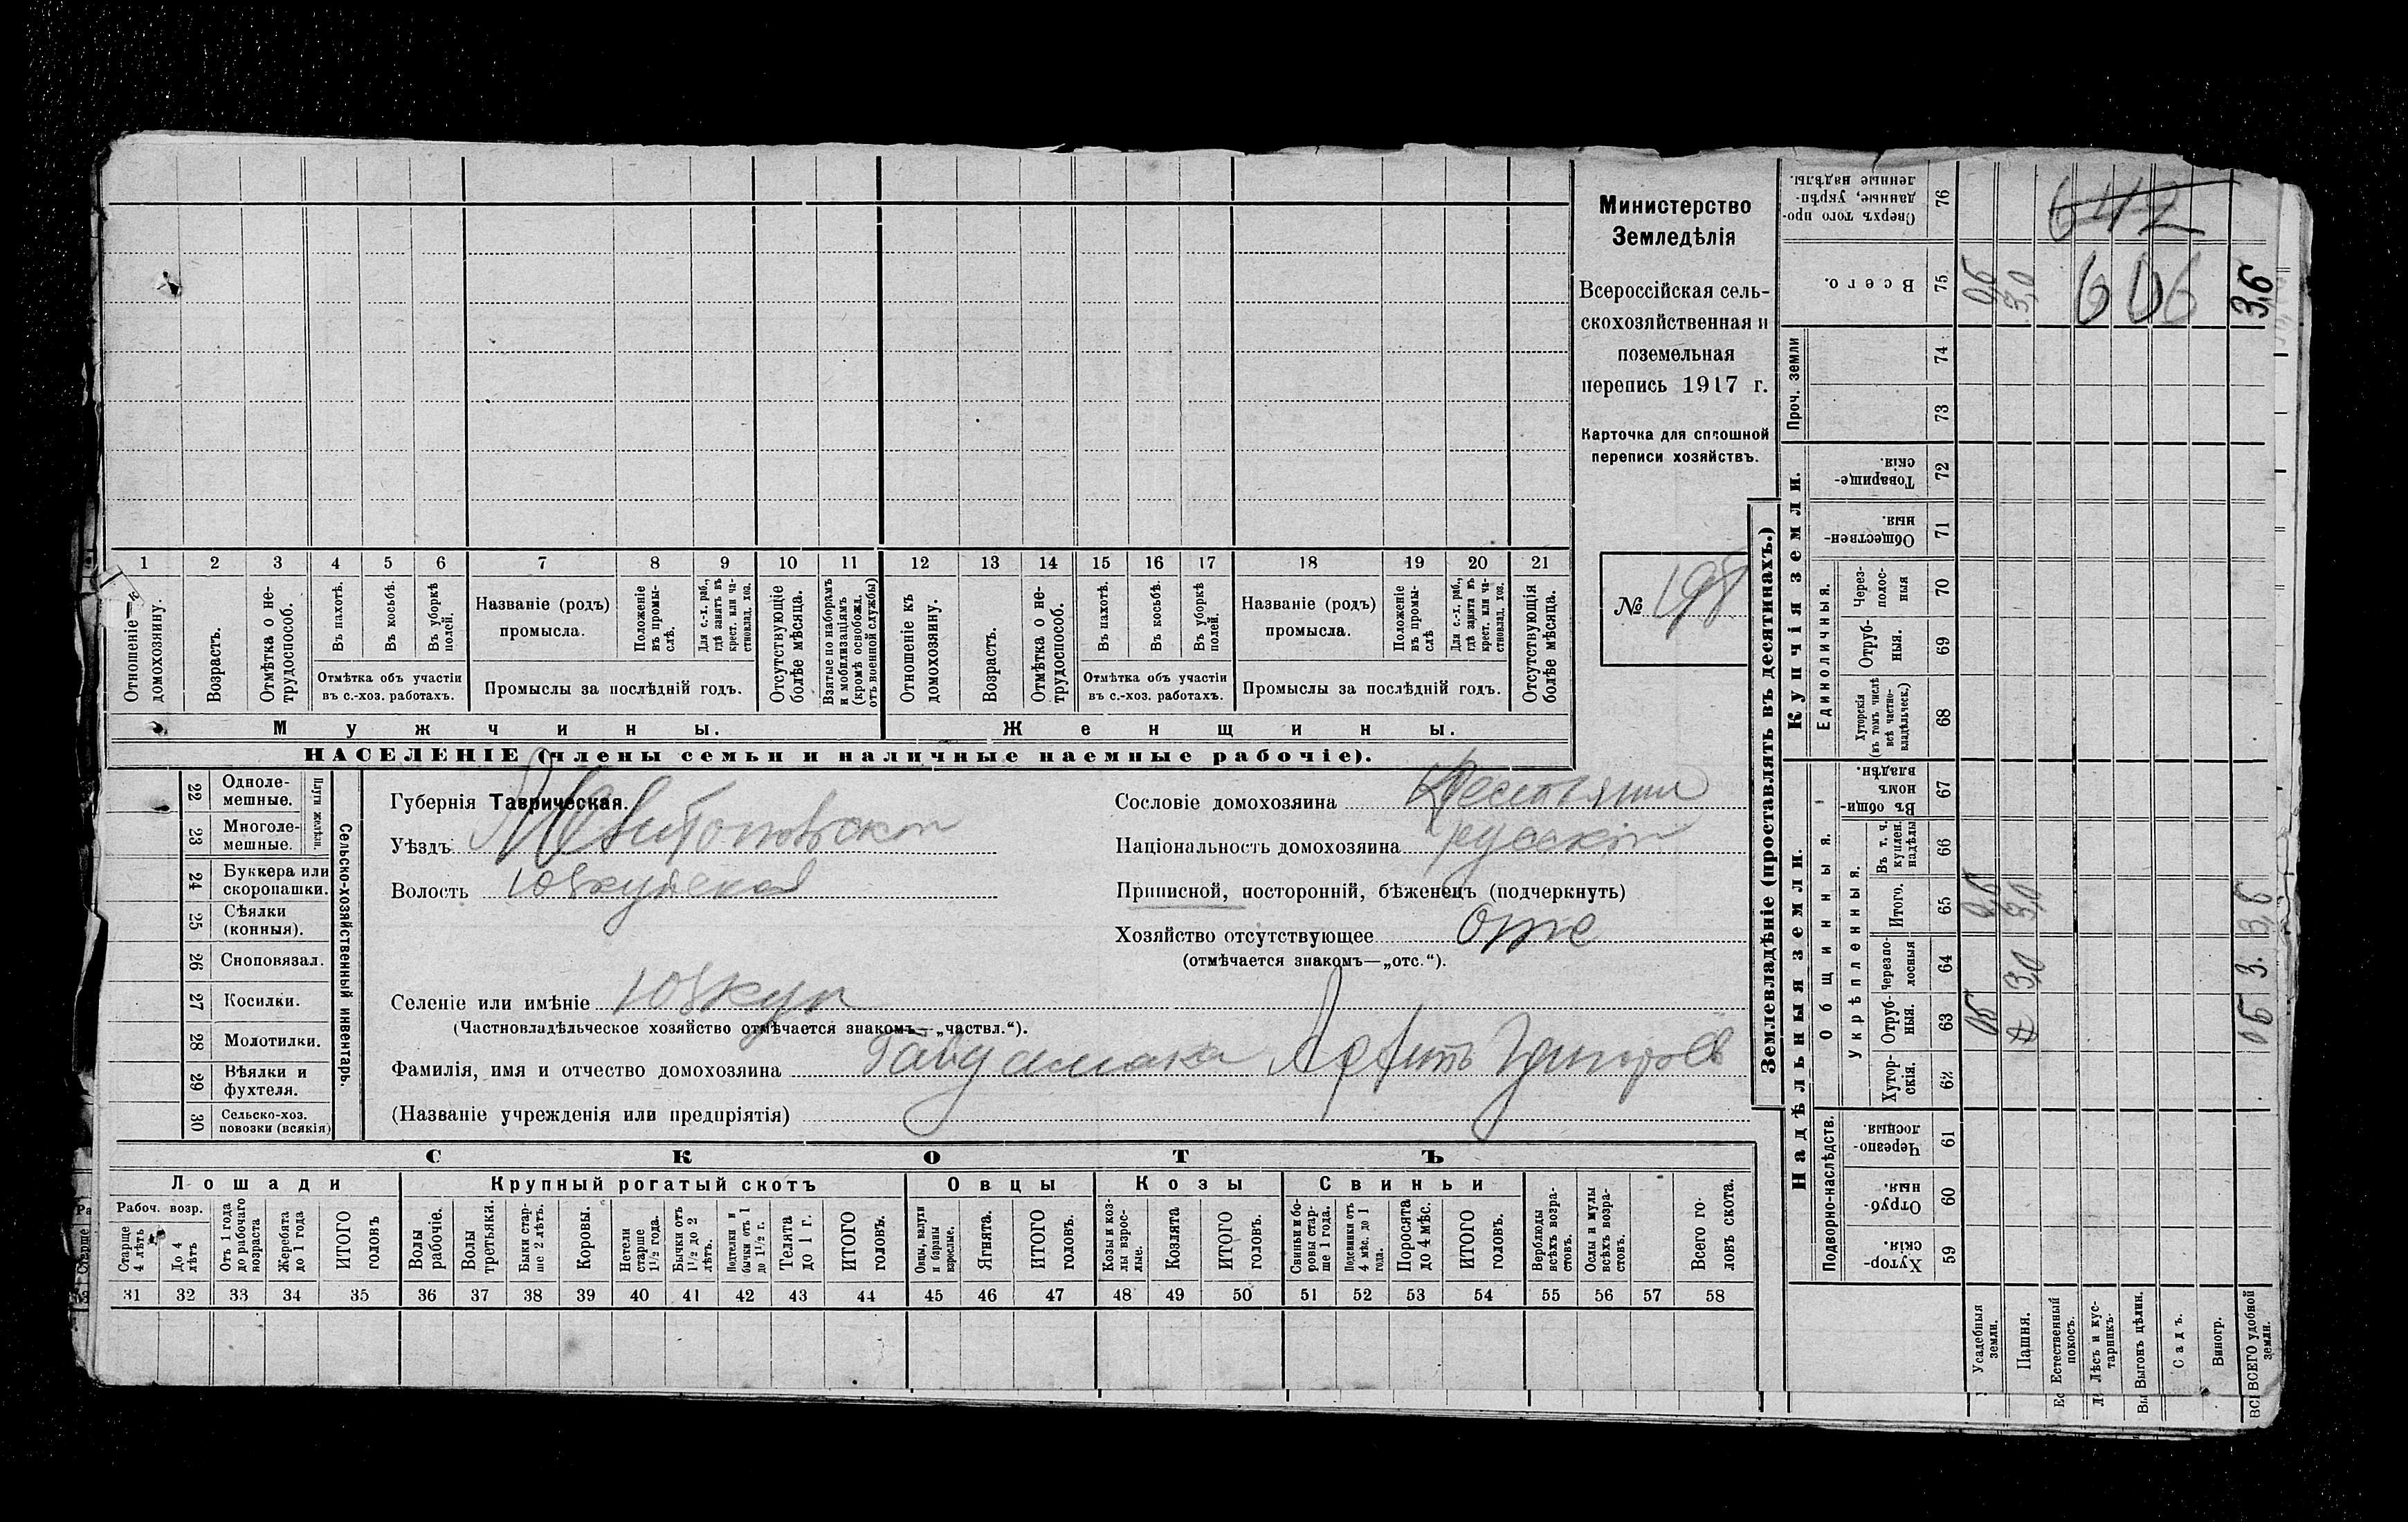 Министерство
Земледѣлія
Всероссійская сель-
скохозяйственная и
поземельная
перепись 1917 г.
Карточка для сплошной
переписи хозяйствъ.
№ 198
1 2 3 4 5 6 7 8 9 10 11 12 13 14 15 16 17 18 19 20 21
Отношеніе къ домохозяину.
Возрастъ.
Отмѣтка о не-
трудоспособ.
Въ пахотѣ.
Въ косьбѣ.
Въ уборкѣ
полей.
Отмѣтка объ участіи
въ с.-хоз. работахъ.
Названіе (родъ)
промысла.
Положеніе
въ промы-
слѣ.
Для с.-х. раб.,
гдѣ занятъ въ
крест. или ча-
стновлад. хоз.
Промыслы за послѣдній годъ.
Отсутствующіе
болѣе мѣсяца.
Взятые по наборамъ
и мобилизаціямъ
(кромѣ освобожд.
отъ военной службы)
Отношеніе къ
домохозяину.
Возрастъ.
Отмѣтка о не-
трудоспособ.
Въ пахотѣ.
Въ косьбѣ.
Въ уборкѣ
полей.
Отмѣтка объ участіи
въ с.-хоз. работахъ.
Названіе (родъ)
промысла.
Положеніе
въ промы-
слѣ
Для с.-х. раб.,
гдѣ занята въ
крест. или ча-
стновлад. хоз.
Промыслы за послѣдній годъ.
Отсутствующія
болѣе мѣсяца.
Мужчины.
Женщины.
НАСЕЛЕНІЕ (члены семьи и наличные наемные рабочіе).
22 Одноле-
мешные.
23 Многоле-
мешные.
Плуги желѣзн.
24 Буккера или
скоропашки.
25 Сѣялки
(конныя).
26 Сноповязал.
27 Косилки.
28 Молотилки.
29 Вѣялки и
фухтеля.
30 Сельско-хоз.
повозки (всякія)
Сельско-хозяйственный инвентарь.
Губернія Таврическая.
Уѣздъ Мелитопольскій
Волость Юзкуйская
Сословіе домохозяина Крестьянин
Національность домохозяина русскій
Приписной, посторонній, бѣженецъ (подчеркнуть)
Хозяйство отсутствующее отс
(отмѣчается знакомъ—„отс.“).
Селеніе или имѣніе Юзкуи
(Частновладѣльческое хозяйство отмѣчается знакомъ—„частвл.“).
Фамилія, имя и отчество домохозяина Гайдамака Григорьев
(Названіе учрежденія или предпріятія)
СКОТЪ
Лошади
Крупный рогатый скотъ
Овцы
Козы
Свиньи
Рабоч. возр.
Старше
4 лѣтъ
До 4
лѣтъ
Отъ 1 года
до рабочаго
возраста
Жеребята
до 1 года
ИТОГО
головъ
Волы
рабочіе.
Волы
третьяки.
Быки стар-
ше 2 лѣтъ.
Коровы.
Нетели
старше
1½ года.
Бычки отъ
1½ до 2
лѣтъ.
Подтелки и
бычки отъ 1
до 1½ г.
Телята
до 1 г.
ИТОГО
головъ.
Овцы, валухи
и бараны
взрослые.
Ягнята.
ИТОГО
головъ.
Козы и коз-
лы взрос-
лые.
Козлята
ИТОГО
головъ.
Свиньи и бо-
ровы стар-
ше 1 года.
Подсвинки отъ
4 мѣс. до 1
года.
Поросята
до 4 мѣс.
ИТОГО
головъ.
Верблюды
всѣхъ возра-
стовъ.
Ослы и мулы
всѣхъ возра-
стовъ.
Всего го-
ловъ скота.
31 32 33 34 35 36 37 38 39 40 41 42 43 44 45 46 47 48 49 50 51 52 53 54 55 56 57 58
Землевладѣніе (проставлять въ десятинахъ.)
Надѣльныя земли.
Купчія земли.
Проч. земли
Подворно-наслѣдств.
Общинныя.
Укрѣпленныя.
Единоличныя.
Хутор-
скія. 59
Отруб-
ныя. 60
Черезпо-
лосныя. 61
Хутор-
скія. 62
Отруб-
ныя. 63
Черезпо-
лосныя 64
Итого. 65
Въ т. ч.
куплен.
надѣлы 66
Въ общин-
номъ
владѣн. 67
Хуторскія
(въ томъ числѣ
всѣ частно-
владѣльческ.) 68
Отруб-
ныя. 69
Через-
полос-
ныя 70
Обществен-
ныя. 71
Товарище-
скія. 72
73
74
Всего. 75
Сверхъ того про-
данные, укрѣп-
ленные надѣлы. 76
Усадебныя
земли.
06 06
Пашня.
3,0 3,0 3,0
Естественный
покосъ.
Лѣсъ и кус-
тарникъ.
Выгонъ цѣлин.
Садъ.
Виногр.
ВСЕГО удобной
земли.
06 3. 3,6 3,6
642
606